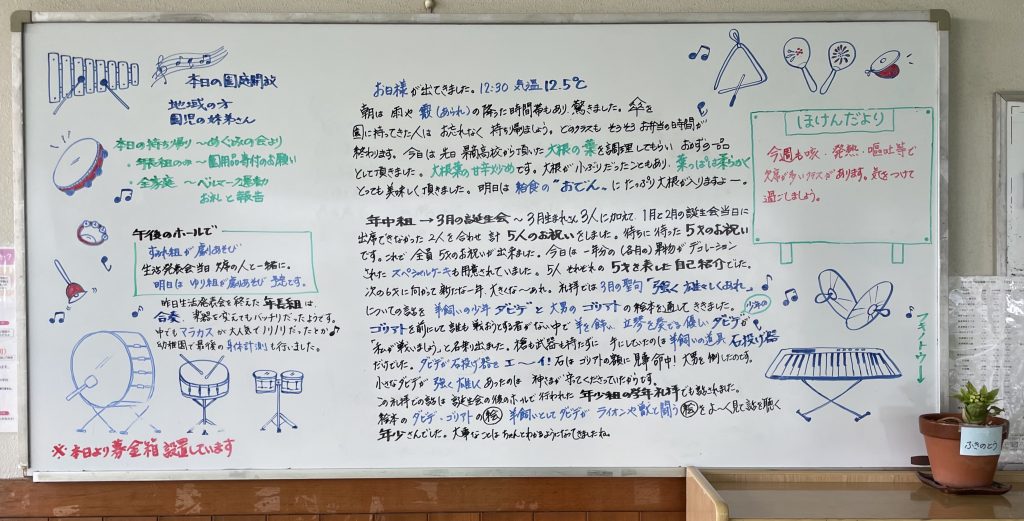 本日の園庭開放
地域の方
園児の妹弟さん
本日の持ち帰り 〜めぐみの会より
・年長組のみ 〜園用品寄付のお願い
・全家庭 〜ベルマーク運動
お礼と報告
午後のホールで
すみれ組が劇あそび
生活発表会当日 欠席の人と一緒に。
明日は ゆり組が劇あそび 予定です。
昨日生活発表会を終えた 年長組は、
合奏、楽器を交換してもバッチリだったようです。
中でも マラカスが大人気でノリノリだったとか
幼稚園で最後の 身体計測も行いました。
※本日より募金箱設置しています
お日様が出てきました。12:30 気温 12.5℃
朝は 雨や 霰(あられ)の降った時間帯もあり 驚きました。傘を
園に持ってきた人は お忘れなく 持ち帰りましょう。どのクラスも そろそろお弁当の時間が
終わります。今日は 先日 頂いた 大根の葉を調理してもらい おかずの一品
として頂きました。大根葉の甘辛炒めです。大根が小ぶりだったこともあり、葉っぱは柔らかく
とっても美味しく頂きました。明日は 給食の“おでん。に たっぷり大根が入りますよー。
年中組 → 3月の誕生会 〜 3月生まれさん 3人に加えて 1月と2月の誕生会当日に
出席できなかった 2人を合わせ 計 5人のお祝いをしました。待ちに待った 5才のお祝い
です。これで 全員 5才のお祝いが出来ました。今日は 一年分の(各月の)果物が デコレーション
された スペシャルケーキも用意されていました。5人 それぞれの 5才を表した 自己紹介でした。
次の6才に向かって新たな一年、大きくなーあれ。礼拝では 3月の聖句「強く雄々しくあれ」
についての話を 羊飼いの少年 ダビデ と 大男の ゴリアト の絵本を通して ききました。
ゴリアトを前にして誰も戦おうとする者がない中で 羊を飼い 立琴を奏でる優しい 少年の ダビデが
「私が戦いましょう」と名乗り出ました。楯も武器も持たずに 手にしていたのは 羊飼いの道具 石投げ器
だけでした。ダビデが石投げ器を エーイ! 石は ゴリアトの額に見事命中! 大男を倒したのです。
小さなダビデが 強く雄々しく あったのは 神さまが共にいてくださったからです。
この礼拝での話は 誕生会の後のホールで行われた 年少組の学年礼拝でも話されました。
絵本の ダビデ・ゴリアトの 絵 羊飼いとして ダビデが ライオンや熊と闘う 絵 を よーく見て 話を聴く
年少さんでした。大事なことは ちゃんとわかるようになってきましたね。
ほけんだより
今週も咳・発熱・嘔吐等で
欠席が多いクラスがあります。気をつけて
過ごしましょう。
フキノトウ→
ふきのとう